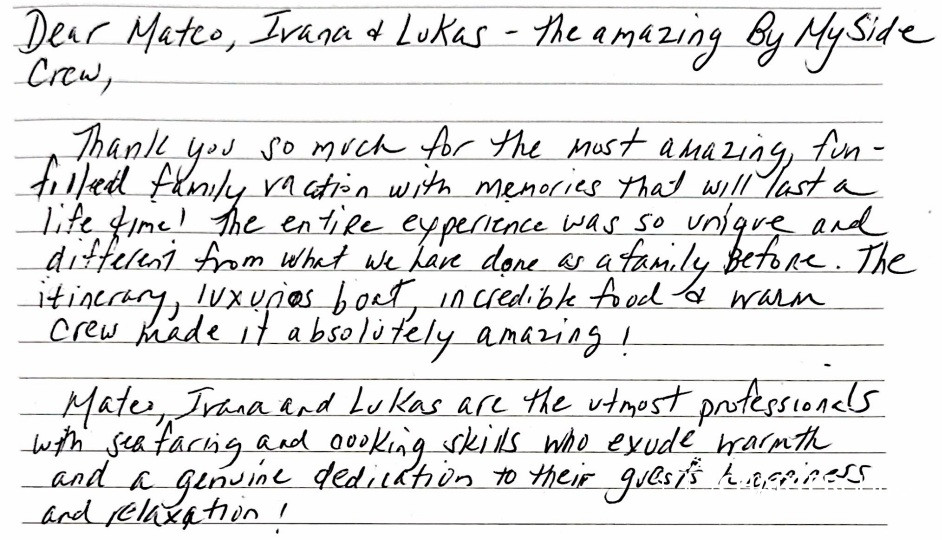 Dear Mateo, Ivana & Lukas - the amazing By My Side
Crew,
Thank you so much for the most amazing, fun-
filled family vaction with memories that will last a
life time! The entire experience was so unique and
different from what we have done as a family before. The
itinerary, luxurios boat, incredible food & warm
crew made it absolutely amazing!
Mateo, Ivana and Lukas are the utmost professionals
with seafaring and cooking skills who exude warmth
and a genuine dedication to their guests happiness
and relaxation!